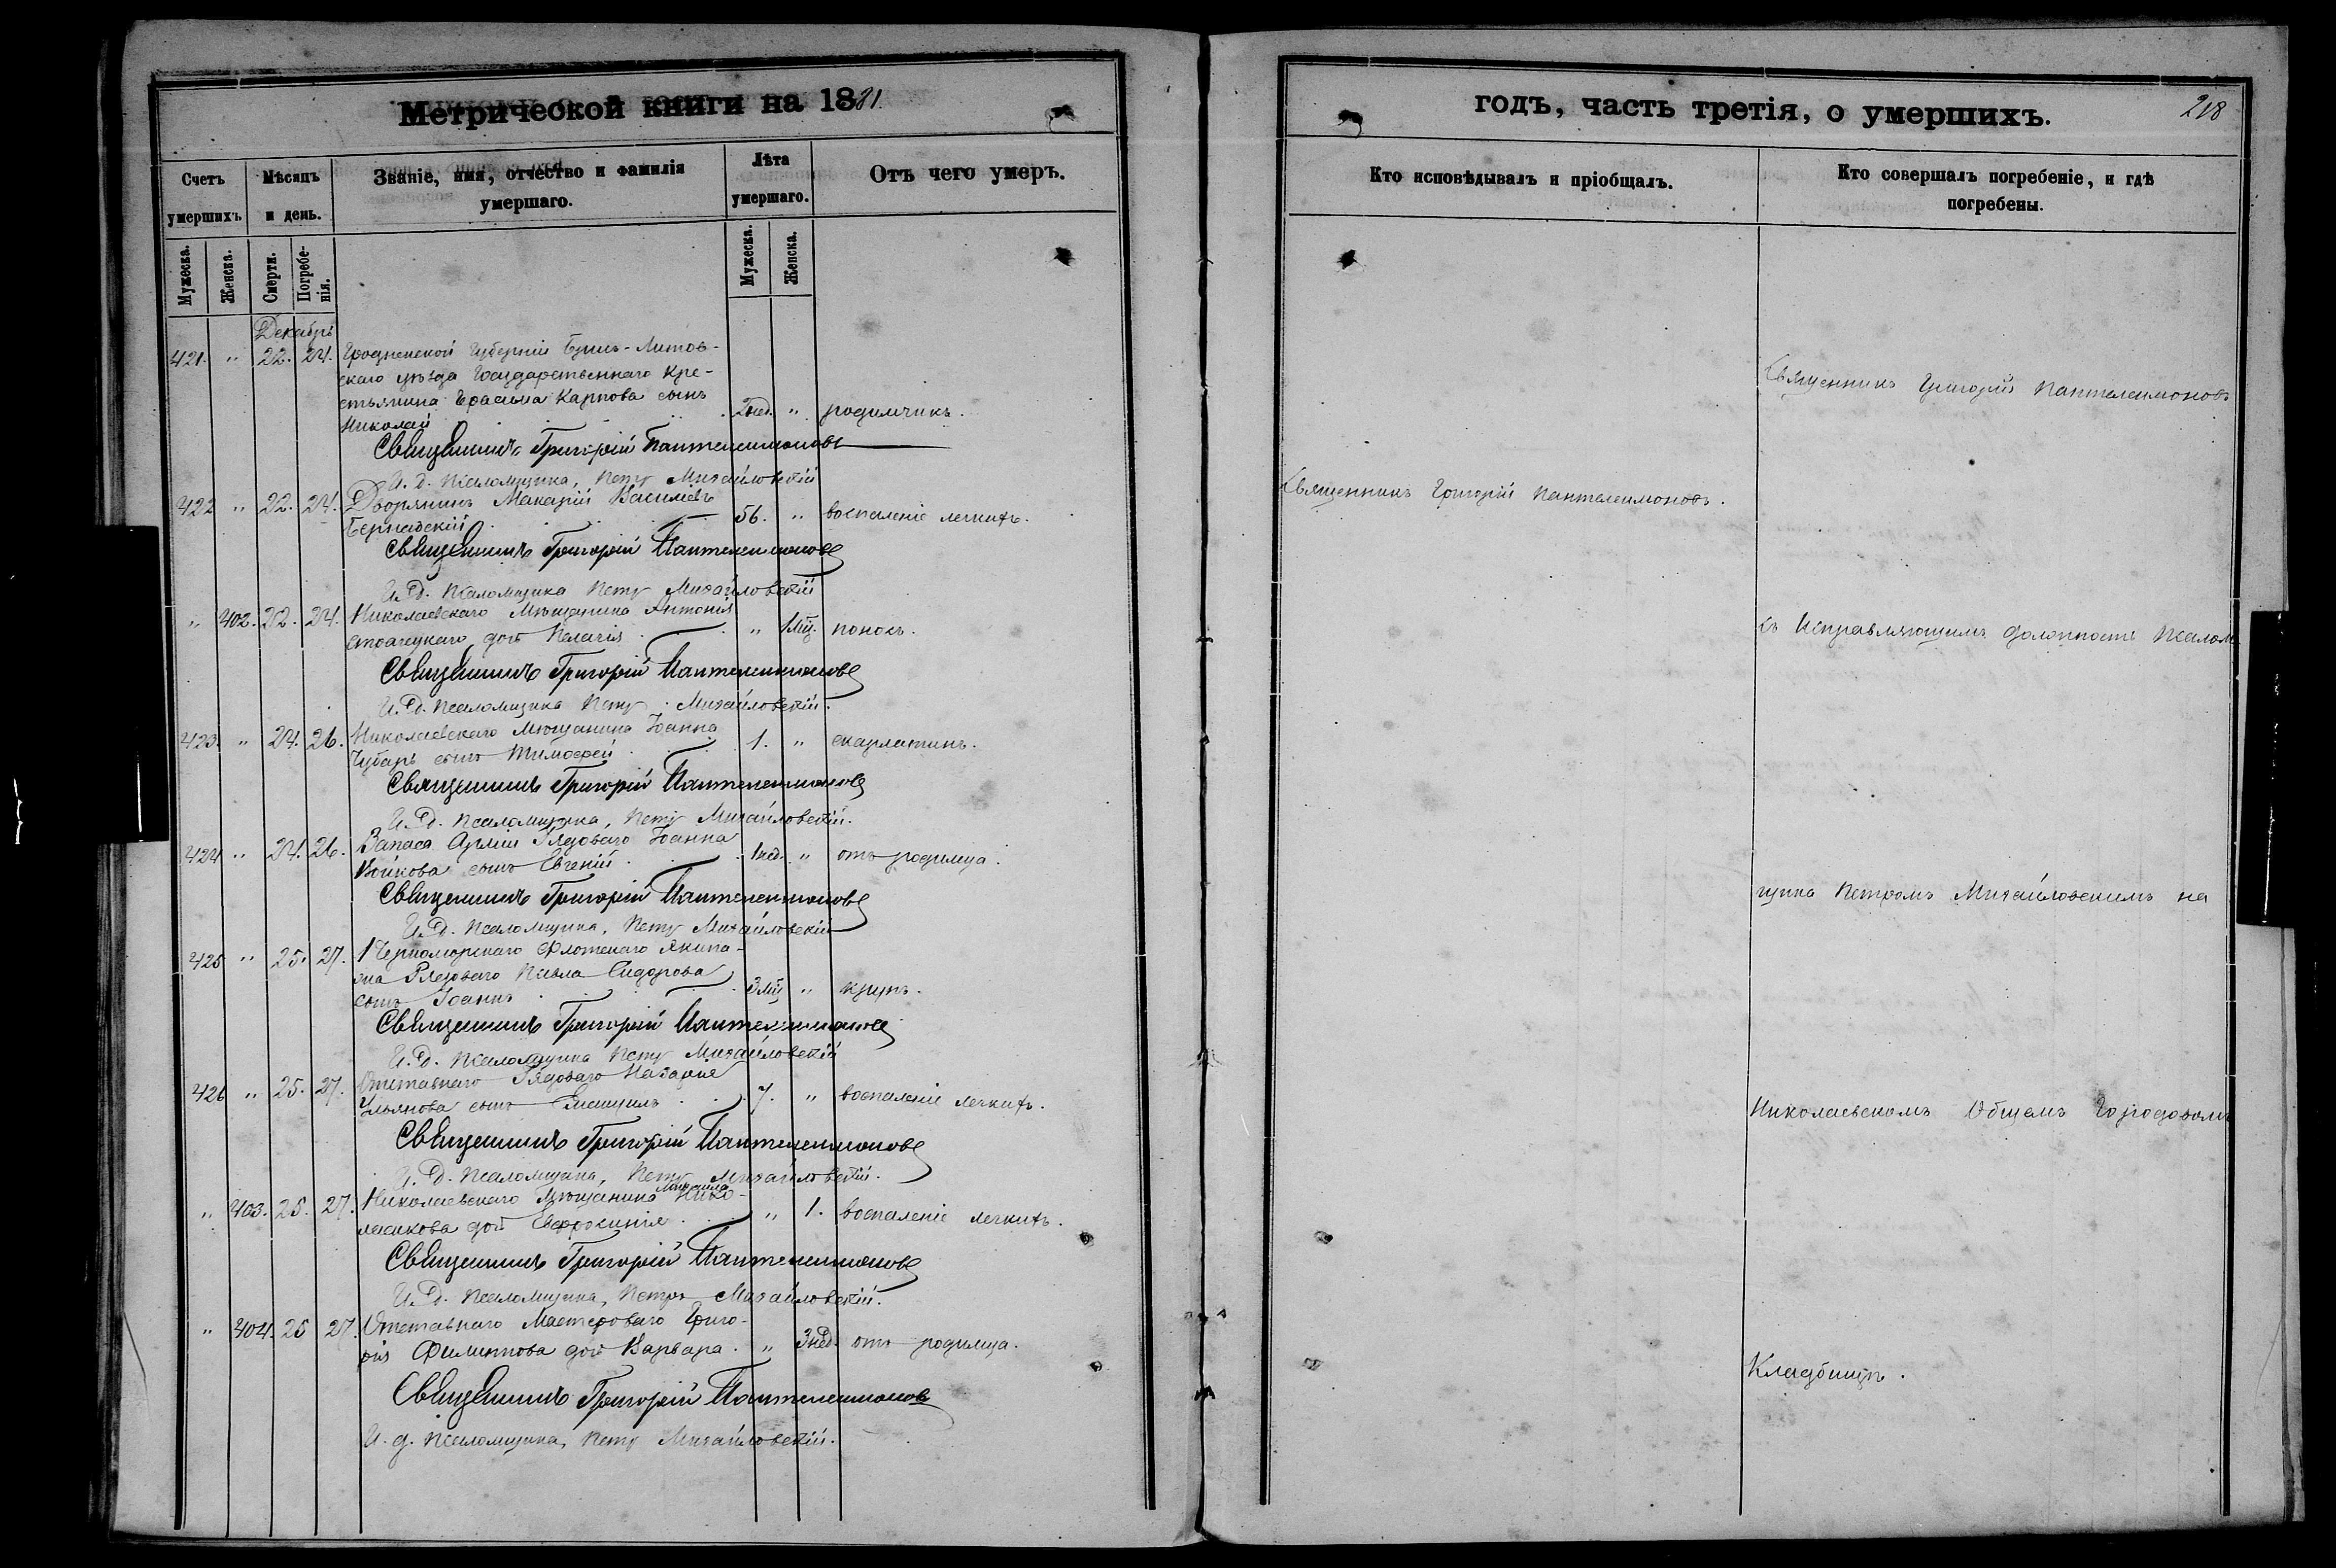 Метрической книги на 1881
годъ, часть третія, о умершихъ.
218
Счетъ умершихъ
Мѣсяцъ и день.
Званіе, имя, отчество и фамилія умершаго.
Лѣта умершаго.
Отъ чего умеръ.
Кто исповѣдывалъ и пріобщалъ.
Кто совершалъ погребеніе, и гдѣ погребены.
Мужеска.
Женска.
Смерти.
Погребенія.
Мужеска.
Женска.
Декабрь
421. " 22. 24. Гродненской Губерніи Брес-Литов-
скаго уѣзда Государственнаго Кре-
стьянина Герасима Карпова сынъ
Николай 2 нед. " родимчикъ.
Священникъ Григорій Пантелеимоновъ
И. д. Псаломщика, Петръ Михайловскій
422 " 22. 24. Дворянинъ Макарій Васильевъ
56. " воспаленіе легкихъ.
Священникъ Григорій Пантелеимоновъ
И. д. Псаломщика Петръ Михайловскій
" 402. 22. 24. Николаевскаго Мѣщанина Антонія
дочь Пелагія " 1 мц. понось.
Священникъ Григорій Пантелеимоновъ
И. д. Псаломщика Петръ Михайловскій.
423. " 24. 26. Николаевскаго Мѣщанина Іоанна
Чубарь сынъ Тимофей 1. " скарлатинъ.
Священникъ Григорій Пантелеимоновъ
И. д. Псаломщика, Петръ Михайловскій.
424 " 24. 26. Запаса Арміи Рядоваго Іоанна
Войкова сынъ Евгеній 1 нед. " отъ родимца.
Священникъ Григорій Пантелеимоновъ
И. д. Псаломщика, Петръ Михайловскій
425 " 25. 27. Черноморскаго Флотскаго Экипа-
жа Рядоваго Павла Сидорова
сынъ Іоаннъ 3 мц " крупъ.
Священникъ Григорій Пантелеимоновъ
И. д. Псаломщика Петръ Михайловскій
426 " 25. 27. Отставнаго Рядоваго Назарія
Ульянова сынъ 7. " воспаленіе легкихъ.
Священникъ Григорій Пантелеимоновъ
И. д. Псаломщика, Петръ Михайловскій.
" 403. 25. 27. Николаевскаго Мѣщанина Михаила Нико-
лаикова дочь Евфросинія " 1. воспаленіе легкихъ.
Священникъ Григорій Пантелеимоновъ
И. д. Псаломщика, Петръ Михайловскій.
" 404. 25 27. Отставнаго Мастероваго Григо-
рія Филиппова дочь Варвара. " 3 нед. отъ родимца.
Священникъ Григорій Пантелеимоновъ
И. д. Псаломщика, Петръ Михайловскій.
Священникъ Григорій Пантелеимоновъ.
Священникъ Григорій Пантелеимоновъ
съ Исправляющимъ должность Псалом
щика Петромъ Михайловскимъ на
Николаевскомъ Общемъ Городовомъ
Кладбищѣ.